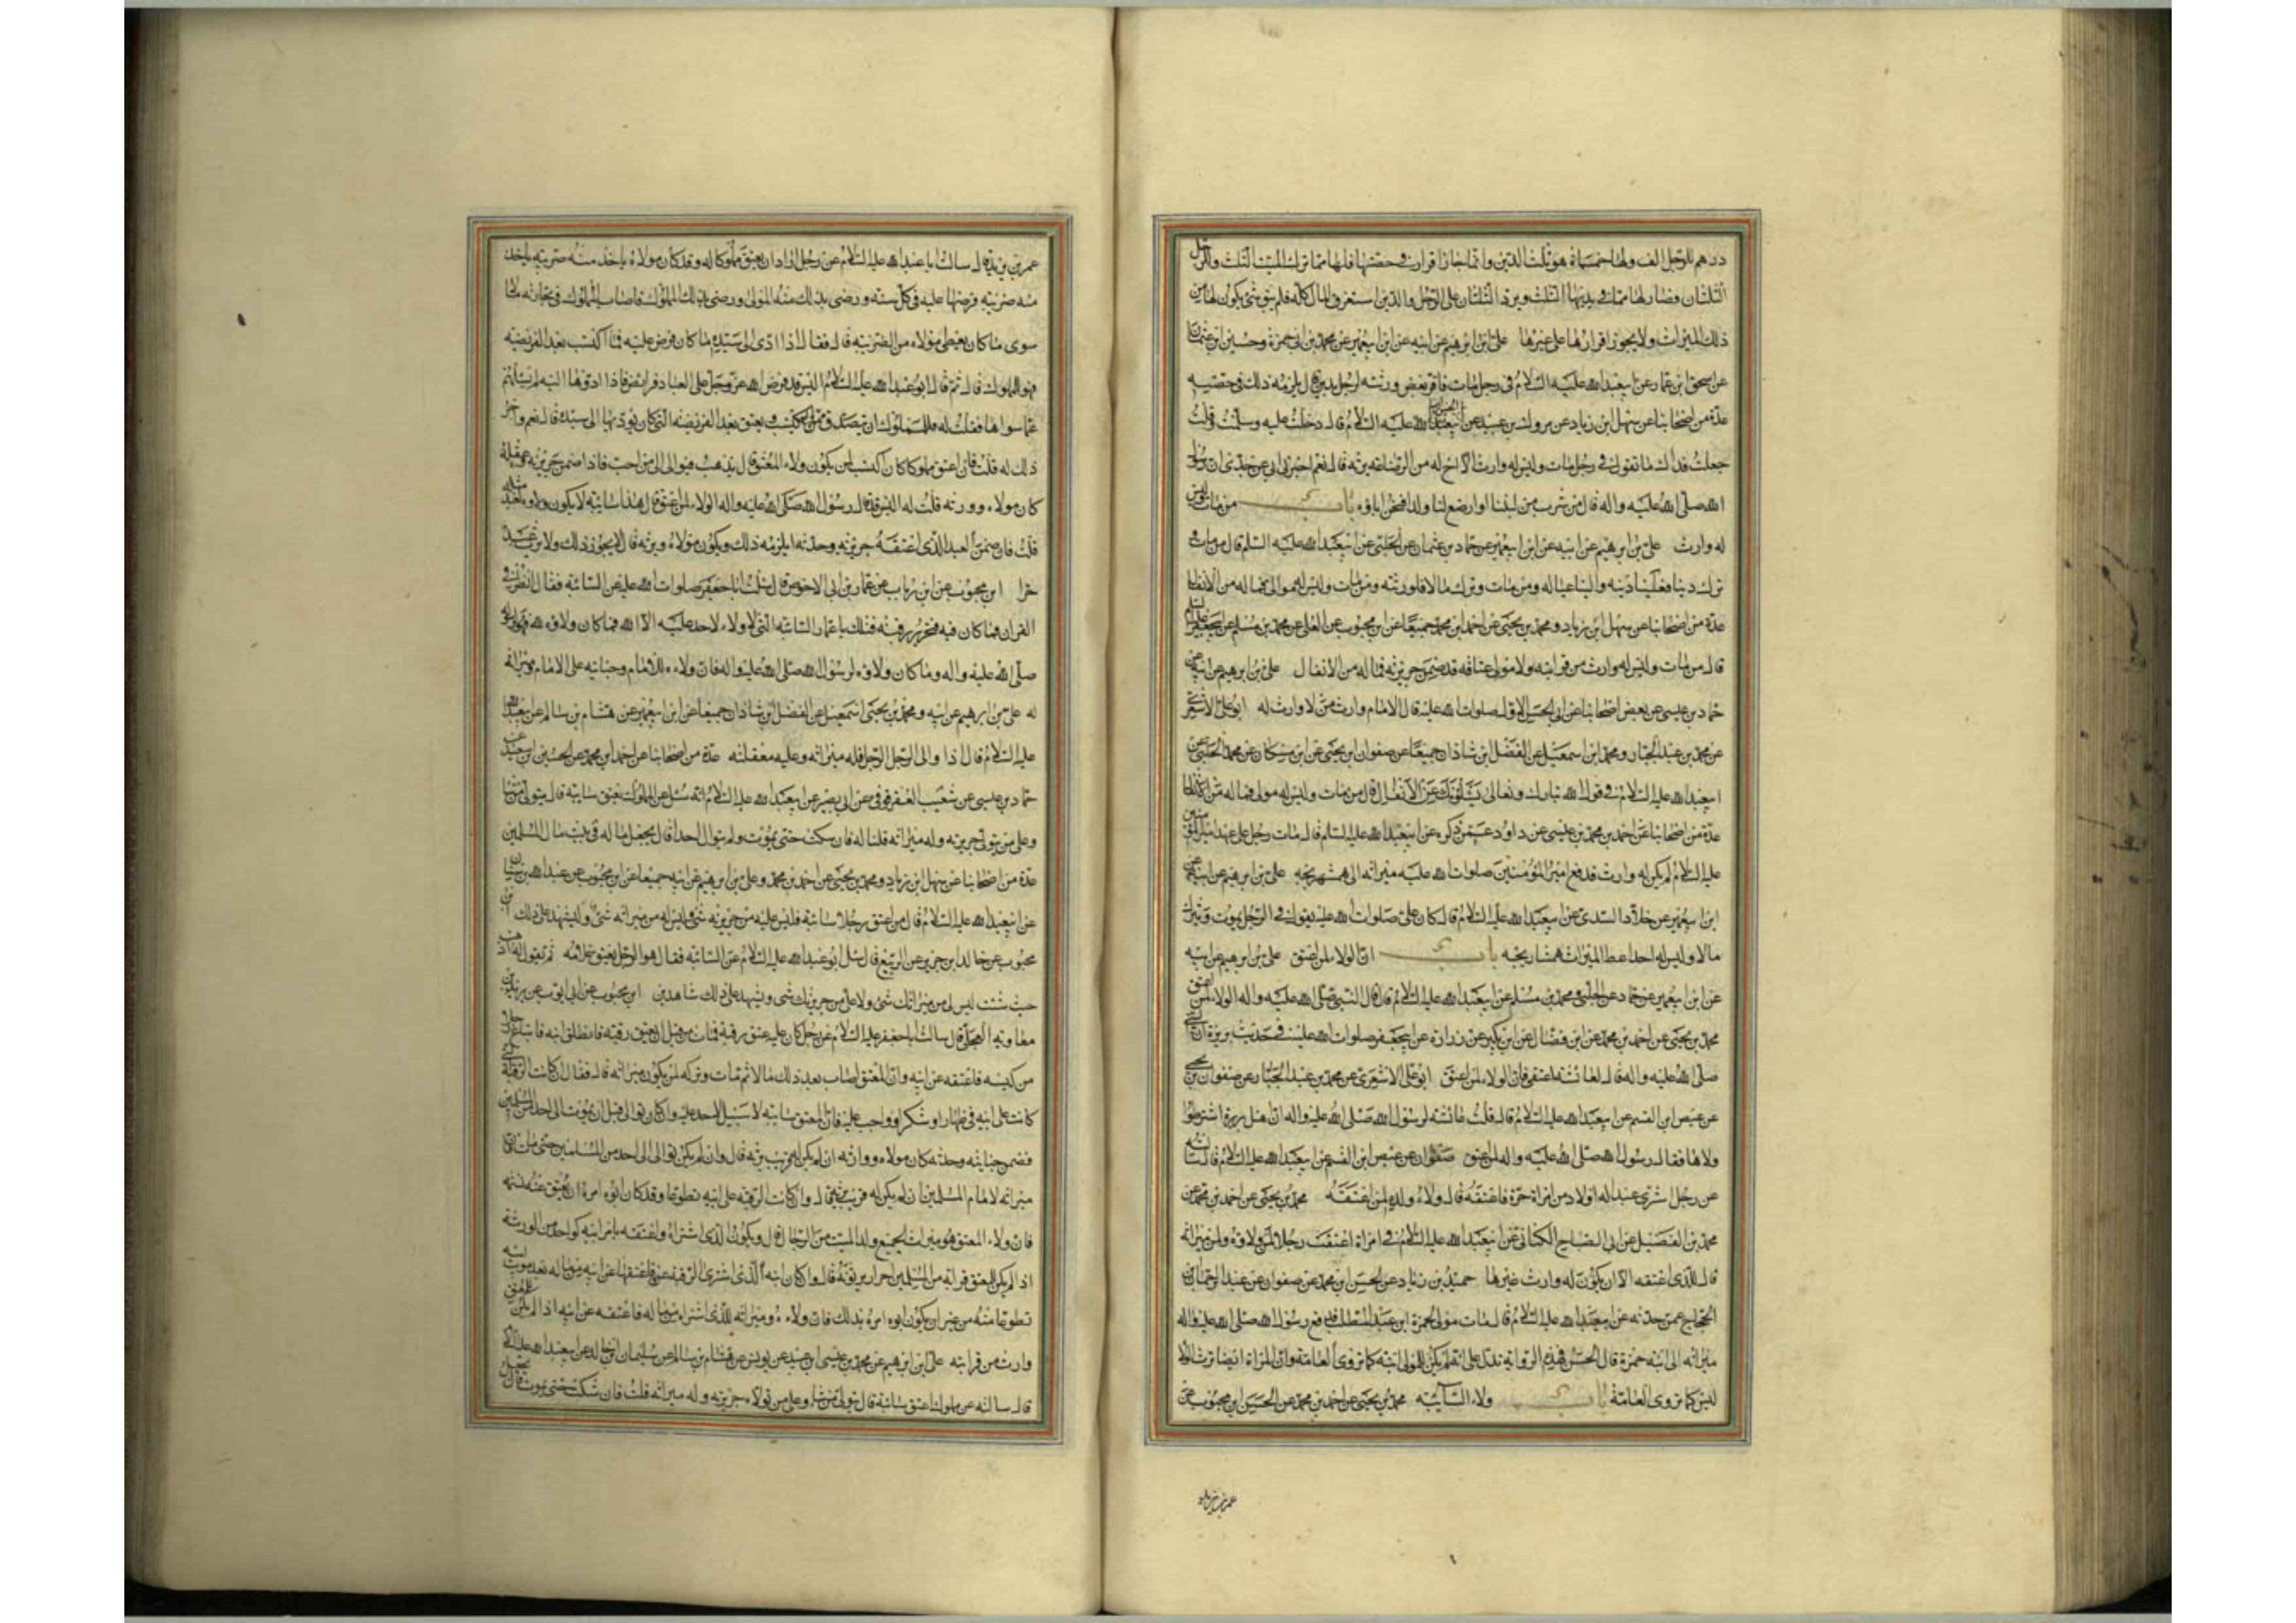 درهم للرجل الف ولها خمسماة هو ثلث الدين وانما جاز اقراره في حصتها فلها مما ترك الميت الثلث وللرجل
الثلثان فصار لها مما في يديها الثلث ويرد الثلثان على الرجل والدين استغرق المال كله فلم يبق شئ يكون لها من
ذلك الميراث ولا يجوز اقرارها على غيرها علي ابن ابرهيم عن ابيه عن ابن ابيعمير عن محمد بن ابي حمزة وحسين ابن عثمان
عن اسحق ابن عمار عن ابيعبد الله عليه السلام في رجل مات فاقر بعض ورثته لرجل بدين قال يلزمه ذلك في حصته
عدة من اصحابنا عن سهل ابن زياد عن مروك بن عبيد عن عليه السلام قال دخلت عليه وسلمت وقلت
جعلت فداك ما تقول في رجل مات وليس له وارث الا اخ له من الرضاعة يرثه قال نعم اخبرني ابي عن جدي ان رسول
الله صلى الله عليه واله قال من شرب من لبننا او ارضع لنا ولدا فنحن اباؤه باب من مات وليس
له وارث علي بن ابرهيم عن ابيه عن ابن ابيعمير عن حماد بن عثمان عن الحلبي عن ابيعبد الله عليه السلم قال من مات و
ترك دينا فعلينا دينه والينا عياله ومن مات وترك مالا فلورثته ومن مات وليس له موالى فماله من الانفال
عدة من اصحابنا عن سهل ابن زياد ومحمد بن يحيى عن احمد ابن محمد جميعا عن ابن محبوب عن العلا عن محمد بن مسلم عن ابيجعفر عليه السلم
قال من مات وليس له وارث من قرابته ولا مولى عتاقه قد ضمن جريرته فماله من الانفال علي بن ابرهيم عن ابيه عن
حماد بن عيسى عن بعض اصحابنا عن ابي الحسن الاول صلوات الله عليه قال الامام وارث من لا وارث له ابو علي الاشعري
عن محمد بن عبد الجبار ومحمد ابن اسمعيل عن الفضل ابن شاذان جميعا عن صفوان ابن يحيى عن ابن مسكان عن محمد الحلبي عن
ابيعبد الله عليه السلام في قول الله تبارك وتعالى يسألونك عن الانفال قال من مات وليس له مولى فماله من الانفال
عدة من اصحابنا عن احمد بن محمد بن عيسى عن داود عمن ذكره عن ابيعبد الله عليه السلم قال مات رجل على عهد امير المؤمنين
عليه السلام لم يكن له وارث فدفع امير المؤمنين صلوات الله عليه ميراثه الى همشهريجه علي بن ابرهيم عن ابيه عن
ابن ابيعمير عن خلاد السدى عن ابيعبد الله عليه السلام قال كان علي صلوات الله عليه يقول في الرجل يموت ويترك
مالا وليس له احد اعط الميراث همشاريجه باب ان الولاء لمن اعتق علي بن ابرهيم عن ابيه
عن ابن ابيعمير عن حماد عن الحلبي ومحمد بن مسلم عن ابيعبد الله عليه السلام قال قال النبي صلى الله عليه واله الولاء لمن اعتق
محمد بن يحيى عن احمد بن محمد عن ابن فضال عن ابن بكير عن زرارة عن ابيجعفر صلوات الله عليه في حديث بريرة ان النبي
صلى الله عليه واله قال لعائشه اعتقي فان الولاء لمن اعتق ابو علي الاشعري عن محمد بن عبد الجبار عن صفوان بن يحيى
عن عيص ابن القسم عن ابيعبد الله عليه السلام قال قالت عائشه لرسول الله صلى الله عليه واله ان اهل بريرة اشترطوا
ولاها فقال رسول الله صلى الله عليه واله لمن اعتق صفوان عن عيص ابن القسم عن ابيعبد الله عليه السلام قال سالته
عن رجل اشترى عبدا له اولاد من امراة حرة فاعتقه قال ولاء ولده لمن اعتقه محمد بن يحيى عن احمد بن محمد عن
محمد بن الفضيل عن ابي الصباح الكناني عن ابيعبد الله عليه السلام في امراة اعتقت رجلا لمن ولاؤه ولمن ميراثه
قال للذي اعتقه الا ان يكون له وارث غيرها حميد بن زياد عن الحسن ابن محمد عن صفوان عن عبد الرحمن ابن
الحجاج عمن حدثه عن ابيعبد الله عليه السلام قال مات مولى لحمزة ابن عبد المطلب فدفع رسول الله صلى الله عليه واله
ميراثه الى ابنه حمزة قال الحسن فهذه الرواية تدل على انه لم يكن للمولى ابنة كما تروى العامة وان المراة ايضا ترث الولا
ليس كما تروى العامة باب ولاء السائبه محمد بن يحيى عن احمد بن محمد عن الحسن ابن محبوب عن
عمر بن يزيد
عمر بن يزيد قال سالت ابا عبد الله عليه السلام عن رجل اراد ان يعتق مملوكا له وقد كان مولاه ياخذ منه ضريبة ياخذ
منه ضريبه فرضها عليه في كل سنه ورضى بذلك منه المولى ورضى بذلك المملوك فاصاب المملوك في تجارته مالا
سوى ما كان يعطى مولاه من الضريبه قال فقال اذا ادى الى سيده ما كان فرض عليه فما اكتسب بعد الفريضه
فهو للمملوك قال ثم قال ابو عبد الله عليه السلام اليس قد فرض الله عز وجل على العباد فرائض فاذا ادوها اليه لم يسالهم
عما سواها فقلت له فللمملوك ان يتصدق مما اكتسب ويعتق بعد الفريضه التي كان يؤديها الى سيده قال نعم واجر
ذلك له قلت فان اعتق مملوكا كان اكتسب لمن يكون ولاء المعتق قال يذهب فيوالى الى من احب فاذا ضمن جريرته وعقله
كان مولاه وورثه قلت له اليس قد قال رسول الله صلى الله عليه واله الولاء لمن اعتق قال هذا سائبه لا يكون ولاؤه لعبد مثله
قلت فان ضمن العبد الذي اعتقه جريرته وحدثه ايلزمه ذلك ويكون مولاه ويرثه قال لا يجوز ذلك ولا يرث عبد
حرا ابن محبوب عن ابن رباب عن عمار بن ابي الاحوص قال سئلت ابا جعفر صلوات الله عليه عن السائبه فقال انظر في
القران فما كان فيه فتحرير رقبه فتلك يا عمار السائبه التي لا ولاء لاحد عليه الا الله فما كان ولاؤه لله فهو لرسوله
صلى الله عليه واله وما كان ولاؤه لرسول الله صلى الله عليه واله فان ولاءه للامام وجنايته على الامام وميراثه
له علي بن ابرهيم عن ابيه ومحمد بن يحيى اسمعيل عن الفضل ابن شاذان جميعا عن ابن ابيعمير عن هشام بن سالم عن ابيعبد الله
عليه السلام قال اذا والى الرجل الرجل فله ميراثه وعليه معقلته عدة من اصحابنا عن احمد ابن محمد عن الحسين ابن سعيد عن
حماد بن عيسى عن شعيب العقرقوفي عن ابي بصير عن ابيعبد الله عليه السلام انه سئل عن المملوك يعتق سائبه قال يتولى من شا
وعلى من يتولى جريرته وله ميراثه قلنا له فان سكت حتى يموت ولم يتوال احدا قال يجعل ماله في بيت مال المسلمين
عدة من اصحابنا عن سهل ابن زياد ومحمد بن يحيى عن احمد بن محمد وعلي بن ابرهيم عن ابيه جميعا عن ابن محبوب عن عبد الله بن سنان
عن ابيعبد الله عليه السلام قال من اعتق رجلا سائبة فليس عليه من جريرته شئ وليس له من ميراثه شئ وليشهد على ذلك ابن
محبوب عن خالد ابن جرير عن ابي الربيع قال سئل ابو عبد الله عليه السلام عن السائبه فقال هو الرجل يعتق غلامه ثم يقول له اذهب
حيث شئت ليس لي من ميراثك شئ ولا علي من جريرتك شئ ويشهد على ذلك شاهدين ابن محبوب عن ابي ايوب عن بريد بن
معاويه العجلي قال سالت ابا جعفر عليه السلام عن رجل كان عليه عتق رقبة فمات من قبل ان يعتق رقبته فانطلق ابنه فابتاع رجلا
من كسبه فاعتقه عن ابيه وان المعتق اصاب بعد ذلك مالا ثم مات وتركه لمن يكون ميراثه قال فقال ان كانت الرقبة التي
كانت على ابيه في ظهار او شكر او واجب عليه فان المعتق سائبه لا سبيل لاحد عليه وان كان توالى قبل ان يموت الى احد من المسلمين
فضمن جنايته وحدثه كان مولاه ووارثه ان لم يكن له قريب يرثه قال وان لم يكن توالى الى احد من المسلمين حتى مات فان
ميراثه لامام المسلمين ان لم يكن له قريب قال وان كانت الرقبه على ابيه تطوعا وقد كان ابوه امره ان يعتق عنه نسمه
فان ولاء المعتق هو ميراث لجميع ولد الميت من الرجال قال ويكون الذي اشتراه واعتقه بامر ابيه كواحد من الورثة
اذا لم يكن للمعتق قرابة من المسلمين احرار يرثونه قال وان كان ابنه الذي اشترى الرقبة فاعتقها عن ابيه من ماله بعد موت ابيه
تطوعا منه من غير ان يكون ابوه امره بذلك فان ولاءه وميراثه للذي اشتراه من ماله فاعتقه عن ابيه اذا لم يكن للمعتق
وارث من قرابته علي ابن ابرهيم عن محمد بن عيسى ابن عبيد عن يونس عن هشام بن سالم عن سليمان ابن خالد عن ابيعبد الله عليه السلام
قال سالته عن مملوك اعتق سائبة قال يتولى من شاء وعلى من تولاه جريرته وله ميراثه قلت فان سكت حتى يموت قال يجعل